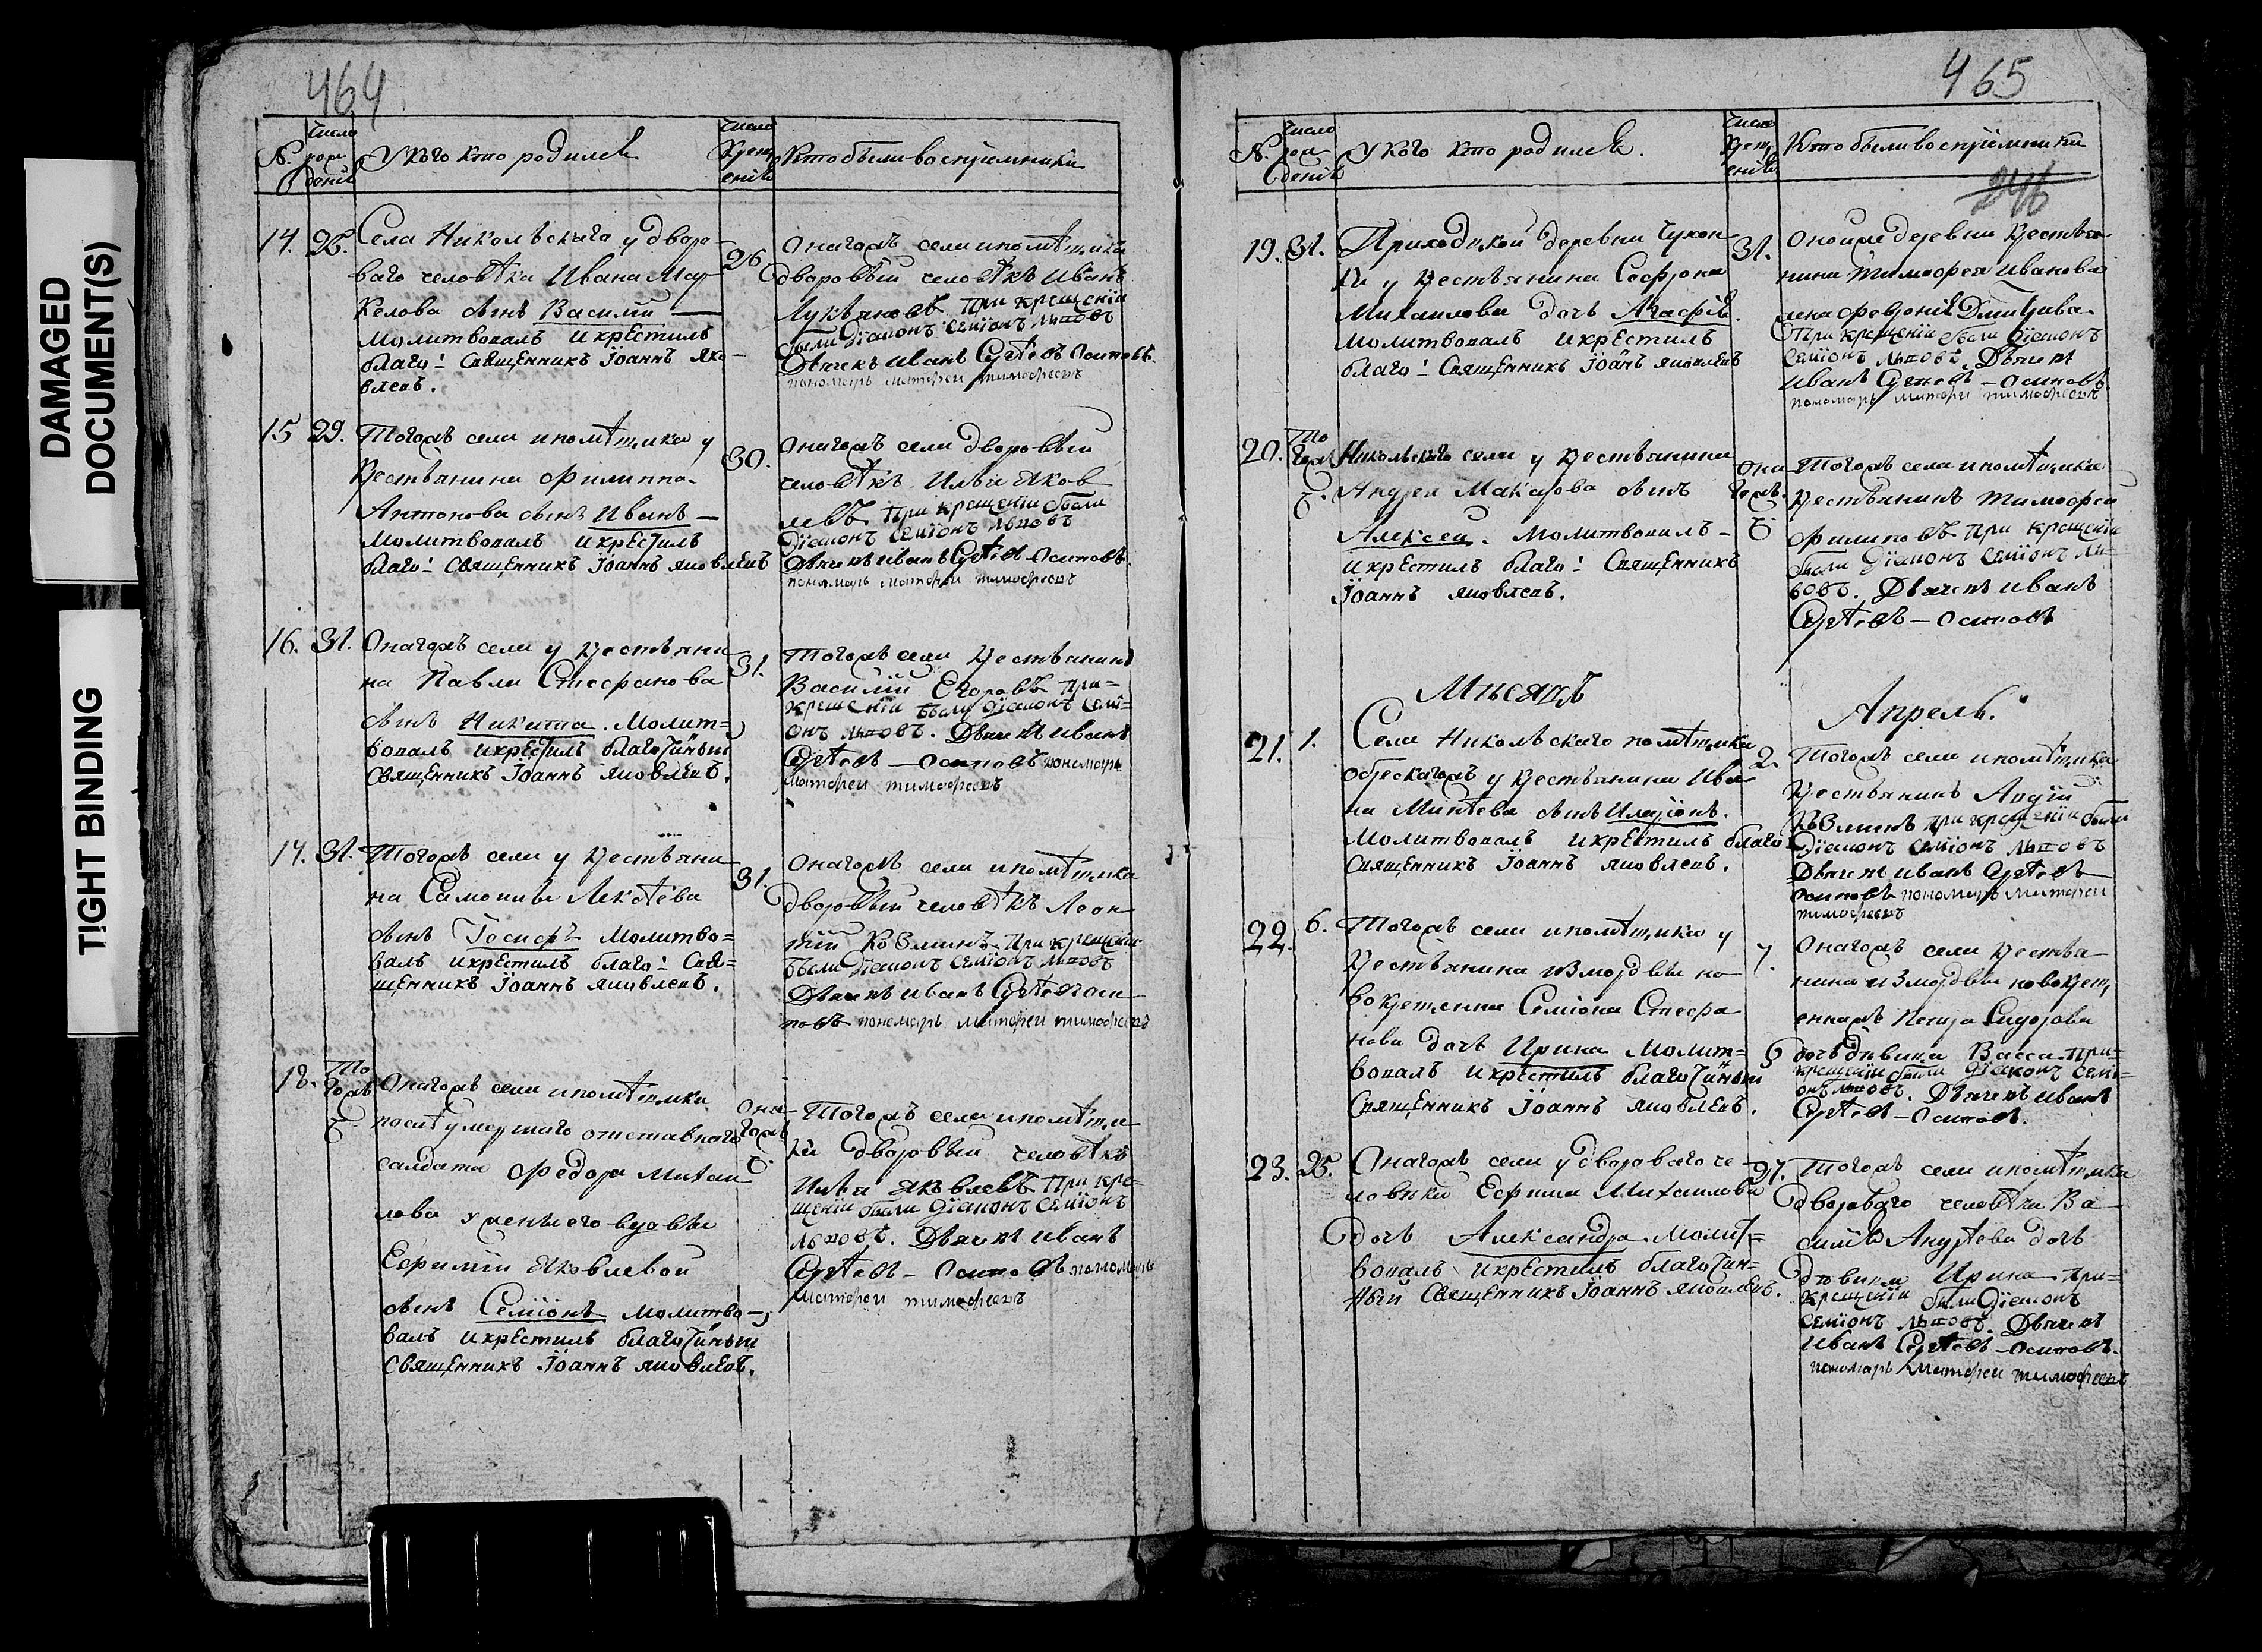 DAMAGED
DOCUMENT(S)
TIGHT BINDING
464
№.
число
рож
дениѧ
У кого кто родилсѧ
число
крещ
ениѧ
Кто были воспрiемники
14. 25. Села Никольскаго у дворо-
ваго человѣка Ивана Мар
келова сынъ Василiй
молитвовалъ и крестилъ
благо: Священникъ Iоаннъ яко-
влевъ.
26
Онагожъ села и помѣщика
дворовый человѣкъ Иванъ
Лукьяновъ при крещенiи
были дiаконъ Семiонъ Львовъ
Дьячекъ иванъ Сергѣевъ Осиповъ.
пономарь матфеи тимофеевъ
15 29. Тогожъ села и помѣщика у
крестьянина Филиппа
Антонова сынъ Иванъ
молитвовалъ и крестилъ
благо: священникъ Iоаннъ яковлевъ
30.
Онагожъ села дворовый
человѣкъ Илья Яков
левъ при крещенiи были
дiаконъ Семiонъ Львовъ
Дьячекъ иванъ Сергѣевъ Осиповъ.
пономарь матфеи тимофеевъ
16. 31. Онагожъ села у крестьяни
на Павла Стефанова
сынъ Никита. Молит=
вовалъ и крестилъ благочинный
священникъ Iоаннъ яковлевъ.
31.
Тогожъ села крестьянинъ
Василiй Егоровъ при=
крещенiи были дiаконъ Семi=
онъ Львовъ. Дьячекъ иванъ
Сергѣевъ — Осиповъ пономарь
матфеи тимофеевъ
17. 31. Тогожъ села у крестьяни
на Самоила Алексѣева
сынъ Iосифъ молитво=
валъ и крестилъ благо: Свя=
щенникъ Iоаннъ яковлевъ.
31.
Онагожъ села и помѣщика
дворовый человѣкъ Леон
тiй Козминъ при крещенiи
были дiаконъ Семiонъ Львовъ
Дьячекъ иванъ Сергѣевъ Оси
повъ пономарь матфеи тимофеевъ
18.
То
гожъ
Онагожъ села и помѣщика
послѣ умершаго отставнаго
салдата Федора Михаи
лова у жены его вдовы
Ефимiи Яковлевой
сынъ Семiонъ молитво=
валъ и крестилъ благочинный
священникъ Iоаннъ яковлевъ.
Она
гожъ
Тогожъ села и помѣщи
ка дворовый человѣкъ
Илья Яковлевъ при кре=
щенiи были дiаконъ Семiонъ
Львовъ. Дьячекъ иванъ
Сергѣевъ — Осиповъ пономарь
матфеи тимофеевъ
465
№.
число
рож
дениѧ
У кого кто родилсѧ.
число
крещ
ениѧ
Кто были воспрiемники
246
19. 31. Приходской деревни Чукон
ки у крестьянина Софрона
Михаилова дочь Агафiя.
молитвовалъ и крестилъ
благо: Священникъ Iоанъ яковлевъ
31.
Оной же деревни крестья
нина Тимофея Иванова
жена Февронiя Дмитриева.
При крещенiи были дiаконъ
Семiонъ Львовъ. Дьячекъ
иванъ Сергѣевъ — Осиповъ
пономарь матфеи тимофеевъ
20.
То
гожъ
Никольскаго села у крестьянина
Андрея Макарова сынъ
Алексей. молитвовалъ
и крестилъ благо: Священникъ
Iоаннъ яковлевъ.
Она
гожъ
Тогожъ села и помѣщика
крестьянинъ Тимофей
Филиповъ при крещенiи
были дiаконъ Семiонъ Ль=
вовъ. Дьячекъ иванъ
Сергѣевъ — Осиповъ
Мѣсяцъ
Апрель.
21. 1. Села Никольскаго помѣщика
у крестьянина Ива
на Минѣева сынъ Иларiонъ.
молитвовалъ и крестилъ благо:
Священникъ Iоаннъ яковлевъ.
2.
Тогожъ села и помѣщика
крестьянинъ Андрiй
Козминъ при крещенiи были
дiаконъ Семiонъ Львовъ
Дьячекъ иванъ Сергѣевъ
Осиповъ пономарь матфеи
тимофеевъ
22. 6. Тогожъ села и помѣщика у
крестьянина изъ мордвы но
вокрещенна Семiона Стефа
нова дочь Ирина Молит=
вовалъ и крестилъ благочинный
Священникъ Iоаннъ яковлевъ.
7.
Онагожъ села крестья
нина изъ мордвы новокрещ
еннаго Петра Сидорова
дочь дѣвица Васса при=
крещенiи были дiаконъ Семi=
онъ Львовъ. Дьячекъ иванъ
Сергѣевъ — Осиповъ.
23. 25. Онагожъ села у двороваго че
ловѣка Ефима Михаилова
дочь Александра. Молит=
вовалъ и крестилъ благочин=
ный Священникъ Iоаннъ яковлевъ.
27.
Тогожъ села и помѣщика
двороваго человѣка Ва
силiя Андрѣева дочь
дѣвица Ирина при=
крещенiи были дiаконъ
Семiонъ Львовъ. Дьячекъ
Иванъ Сергѣевъ — Осиповъ.
пономарь матфеи тимофеевъ